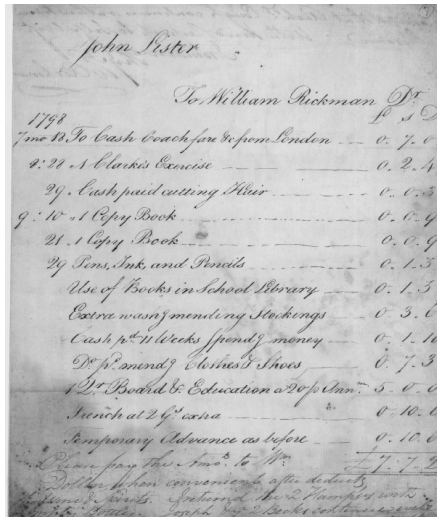 John Lister
To William Rickman Dr
£ s D
1798
7 mo 18 To Cash Coach fare &c from London 0. 7. 0
8: 28 1 Clarkes Exercise 0. 2. 4
29 Cash paid cutting Hair 0. 0. 3
9: 10 1 Copy Book 0. 0. 9
21 1 Copy Book 0. 0. 9
29 Pens, Ink, and Pencils 0. 1. 3
Use of Books in School Library 0. 1. 3
Extra washg mending Stockings 0. 3. 6
Cash pd 11 Weeks spendg money 0. 1. 10
Do pd mendg Clothes & Shoes 0. 7. 3
1 Qr Board & Education a 20 p Annm 5. 0. 0
French at 2 Gs extra 0. 10. 6
Temporary Advance as before 0. 10. 6
Please pay the Amot to Wm £7. 7. 2
when convenient after deductg
returned the 2 Hampers with
Joseph 2 Books